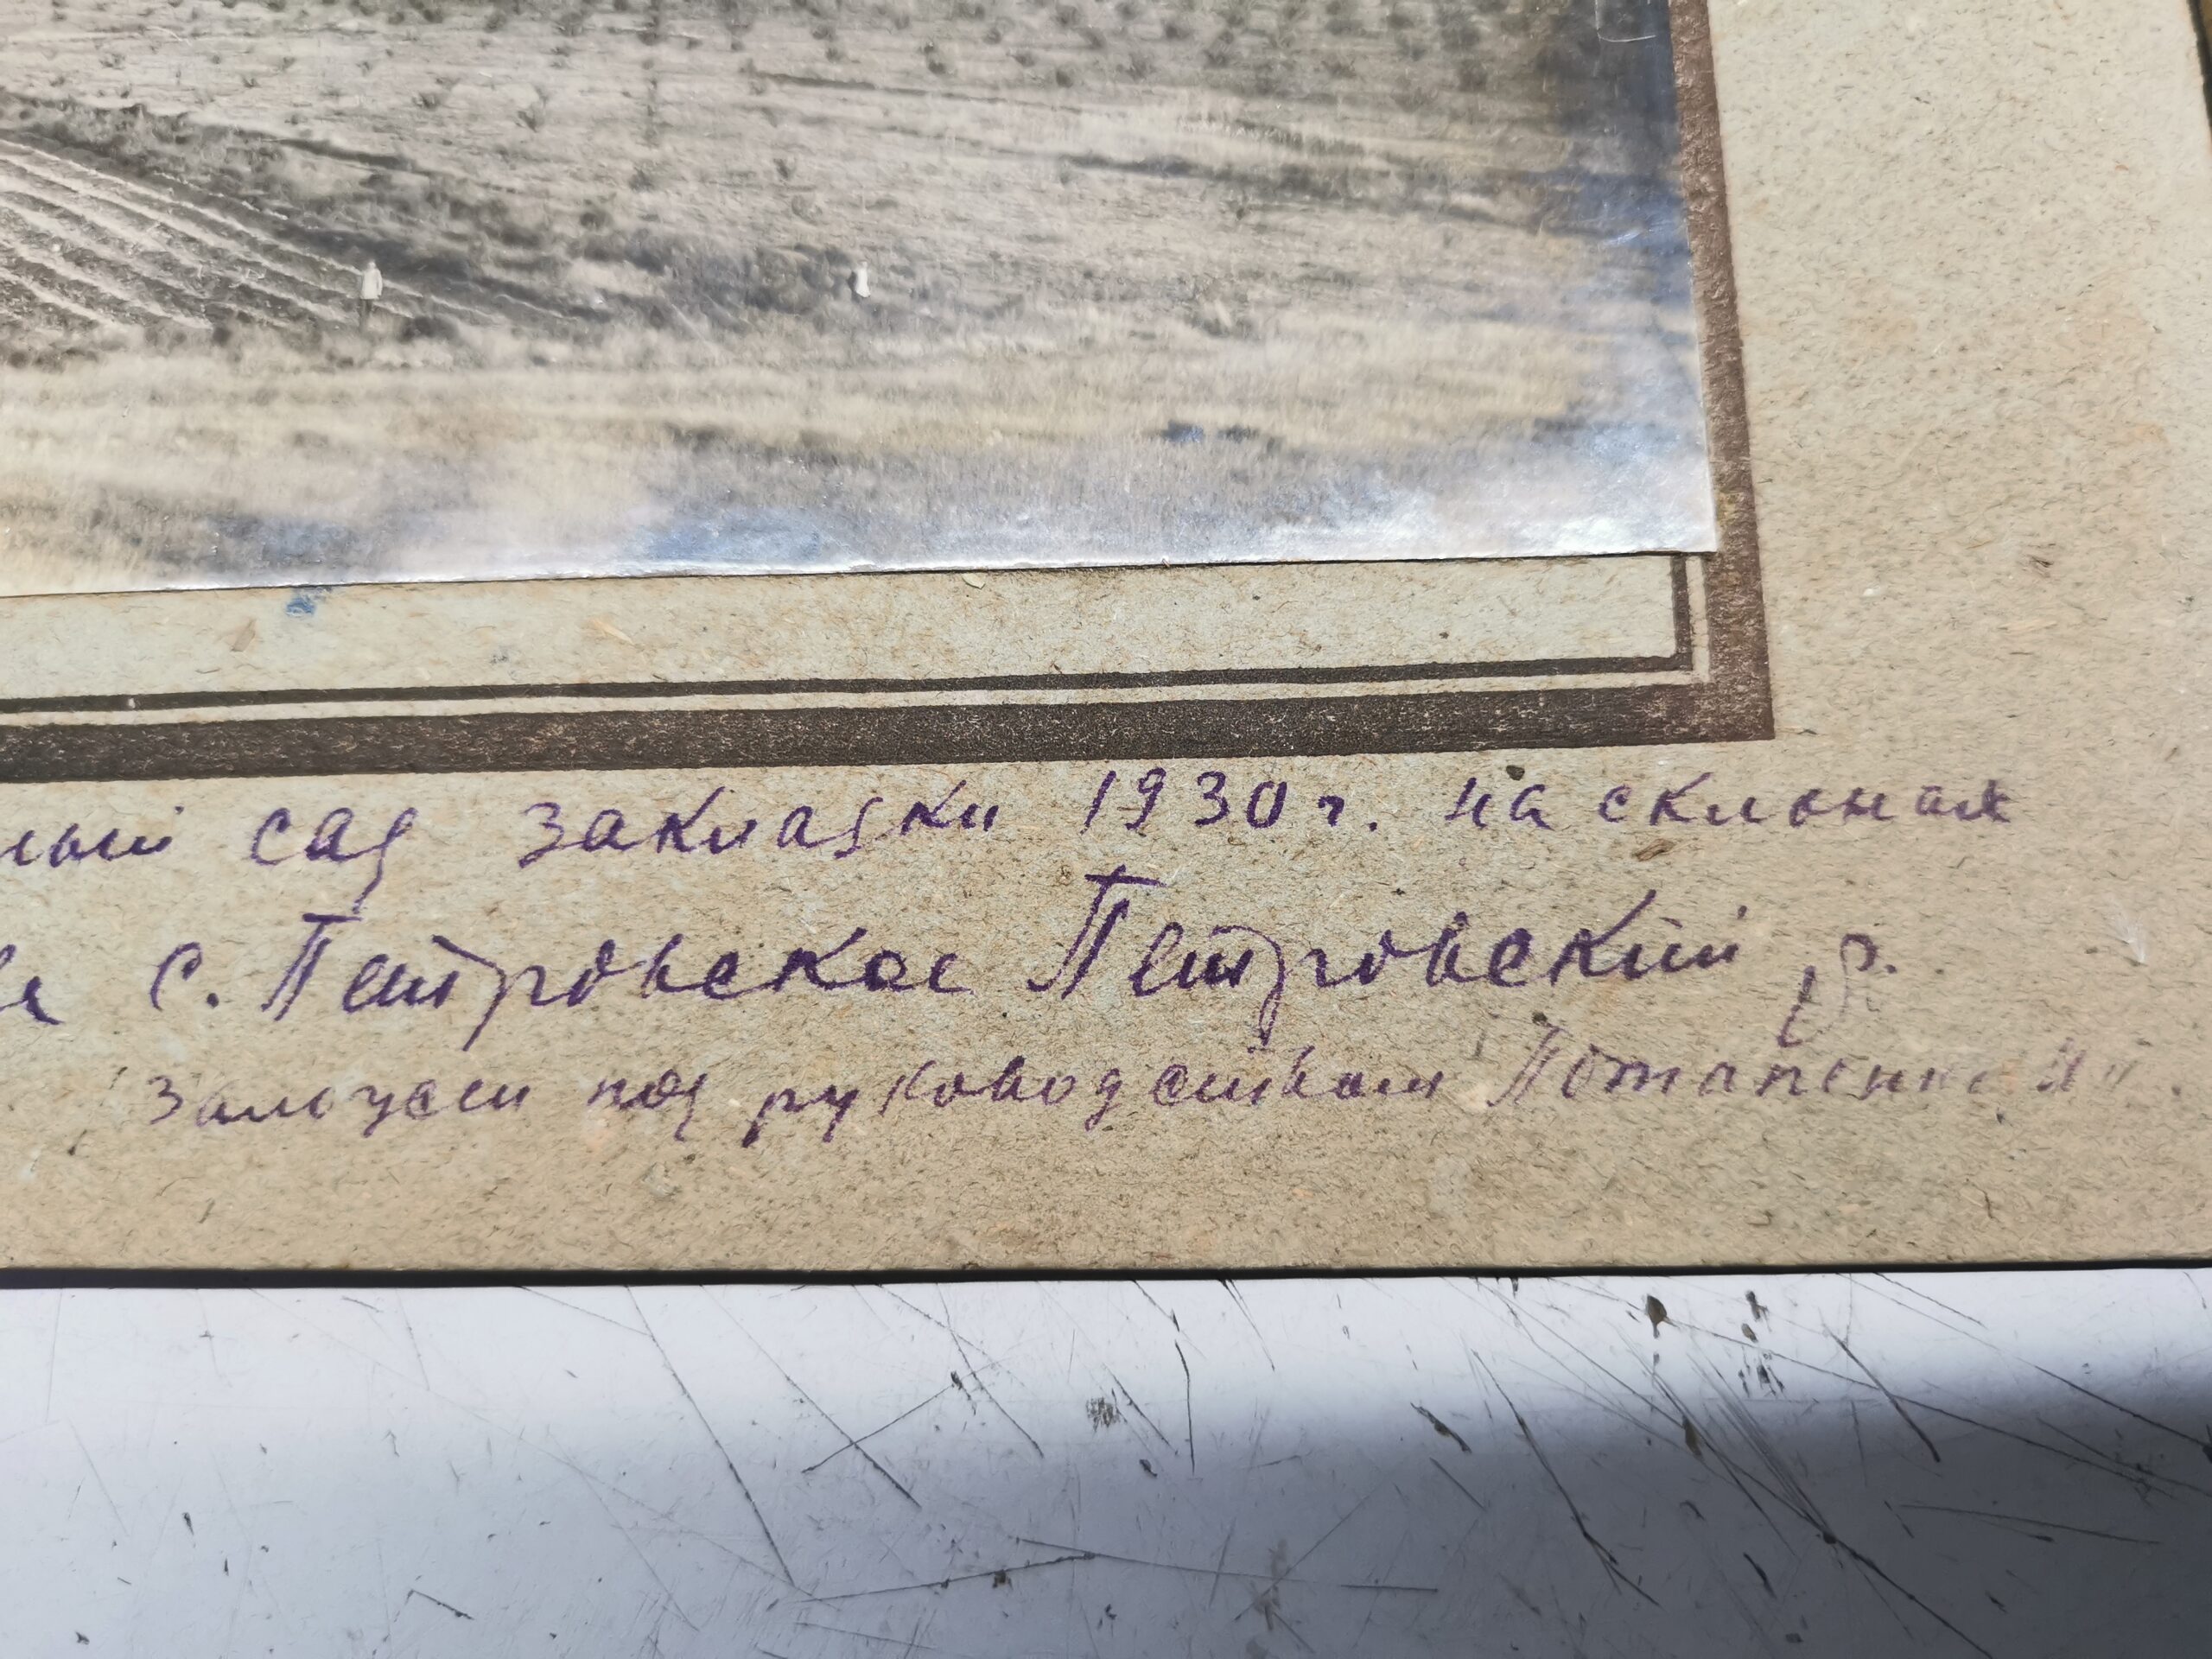 сад закладки 1930 г. на склонах
с. Петровское Петровский р.
Заложен под руководством Потапенко